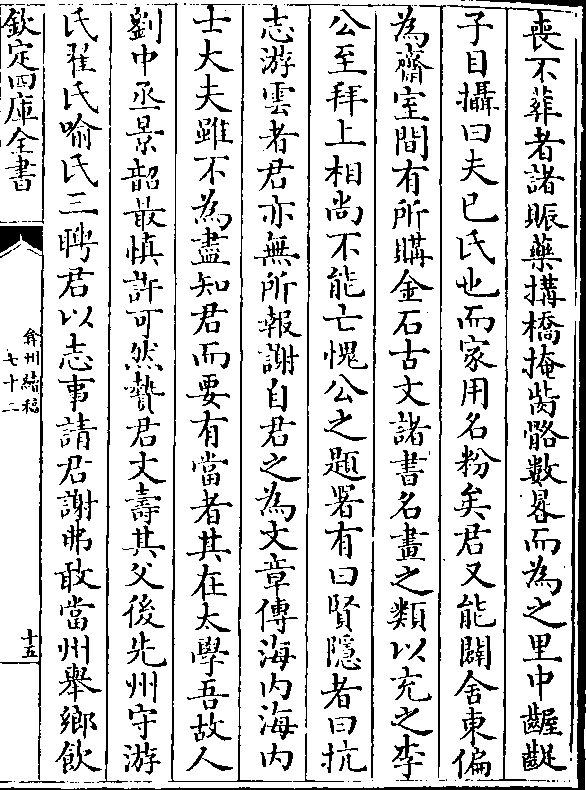 喪不葬者諸賑藥搆橋掩胔骼數畧而為之里中齷齪
子目攝曰夫已氏也而家用名粉矣君又能闢舍東偏
為齋室間有所購金石古文諸書名畫之類以充之李
公至拜上相尚不能亡愧公之題署有曰賢隱者曰抗
志游雲者君亦無所報謝自君之為文章傳海内海内
士大夫雖不為盡知君而要有當者其在太學吾故人
劉中丞景韶最慎許可然贄君文壽其父後先州守游
氏翟氏喻氏三聘君以志事請君謝弗敢當州舉鄉飲
欽定四庫全書
弇州續稿
七十二
十五